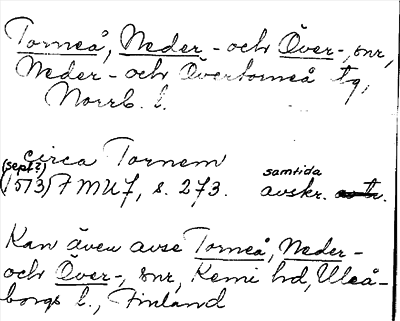 Torneå, Neder- och Över-, snr,
Neder- och Övertorneå tg,
Norrb. l.
circa Tornem
(sept?) samtida
(1573) FMU7, s. 273. avskr.
Kan även avse Torneå, Neder-
och Över-, snr, Kemi hd, Uleå-
borgs l., Finland